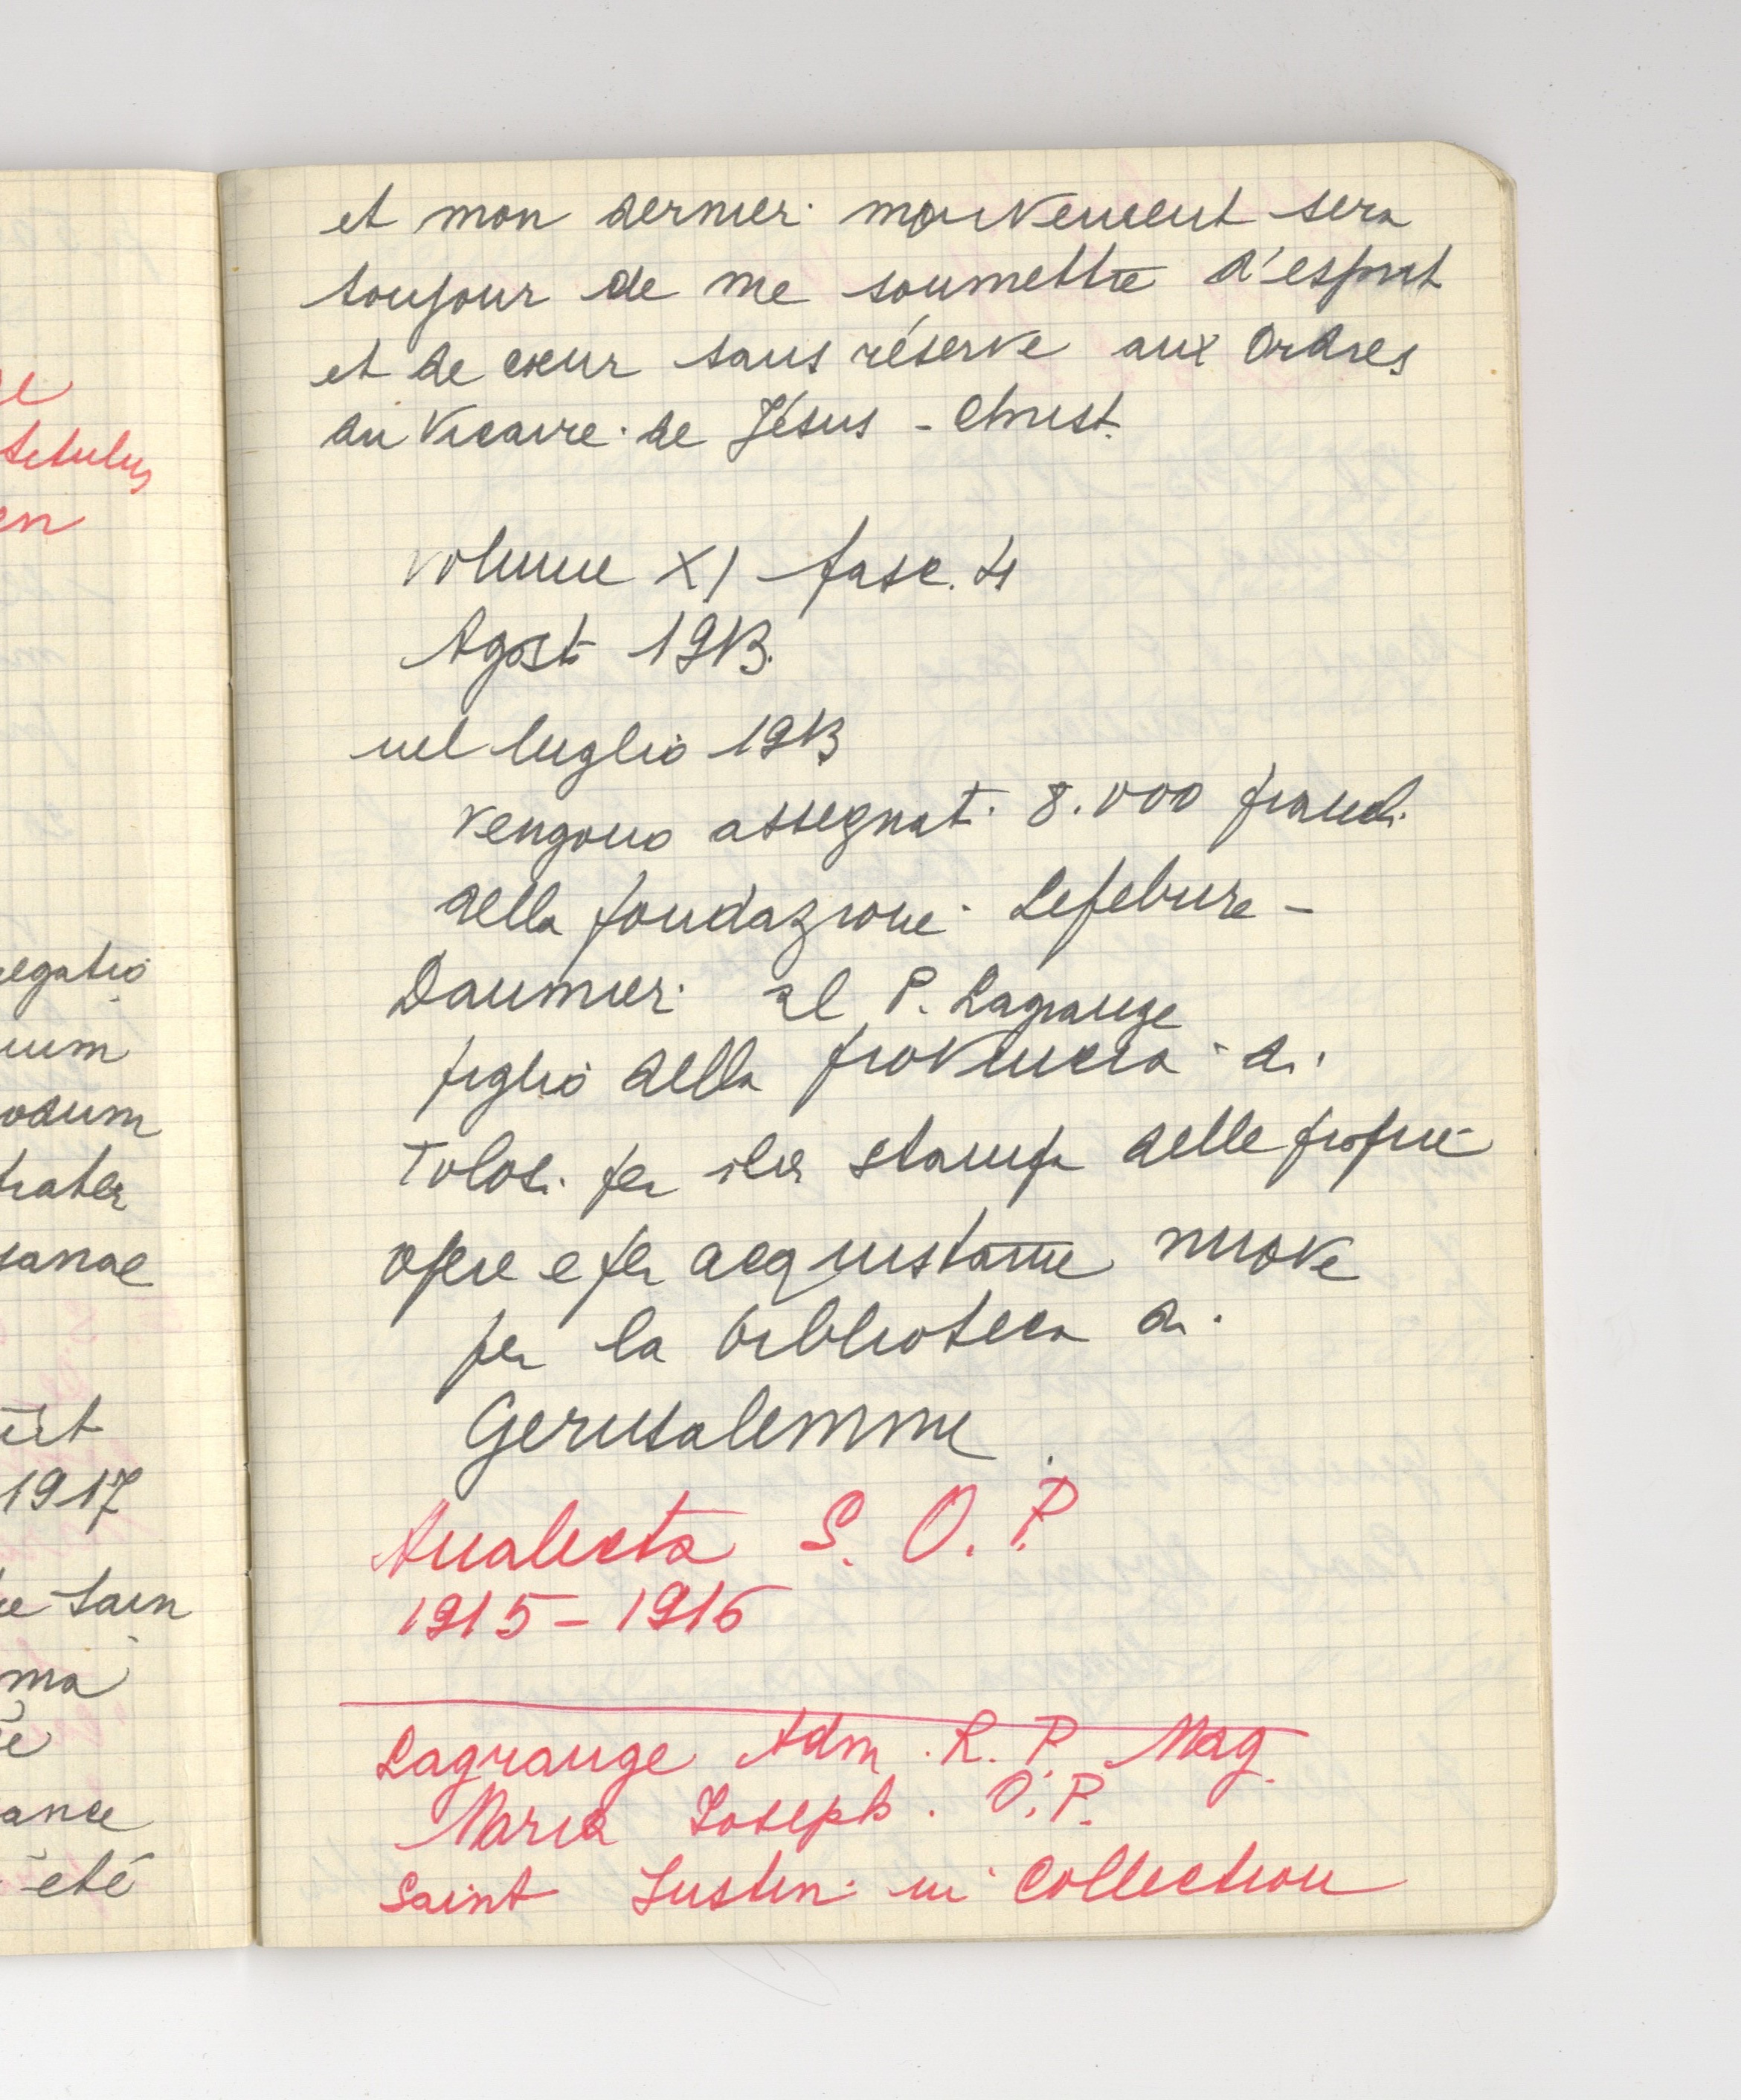 et mon dernier mouvement sera
toujour de me soumettre d'esprit
et de cœur sans réserve aux ordres
du Vicaire de Jésus - Christ.
volume XI fasc. 4
Agosto 1913.
nel luglio 1913
vengono assegnati 8.000 franchi
della fondazione Lefebure -
Daumier al P. Lagrange
figlio della provincia di
Tolosi per stampa delle proprie
opere e per acquistarne nuove
per la biblioteca di
Gerusalemme
Analecta S. O. P.
1915 - 1916
Lagrange Adm. R. P. Mag.
Maria Joseph. O. P.
Saint Justin in Collection
ge
titulus
en
egatio
uum
odum
trater
sanae
1917
sain
ma
ance
été